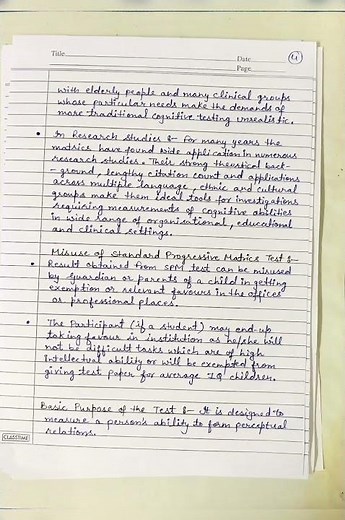 Title
Date
Page
with elderly people and many clinical groups
whose particular needs make the demands of
more traditional cognitive testing unrealistic.
• In Research Studies :- For many years the
matrics have found wide application in numerous
research studies. Their strong theoretical back-
-ground, lengthy citation count and applications
across multiple language, ethnic and cultural
groups make them ideal tools for investigations
requiring measurements of cognitive abilities
in wide range of organisational, educational
and clinical settings.
Misuse of Standard Progressive Matrics Test :-
• Result obtained from SPM test can be misused
by Guardian or parents of a child in getting
exemption or relevant favours in the offices
or professional places.
• The Participant (if a student) may end-up
taking favour in institution as he/she will
not be difficult tasks which are of high
Intellectual ability or will be exempted from
giving test paper for average IQ children.
Basic Purpose of the Test :- It is designed to
measure a person's ability to form perceptual
relations.
CLASSTIME